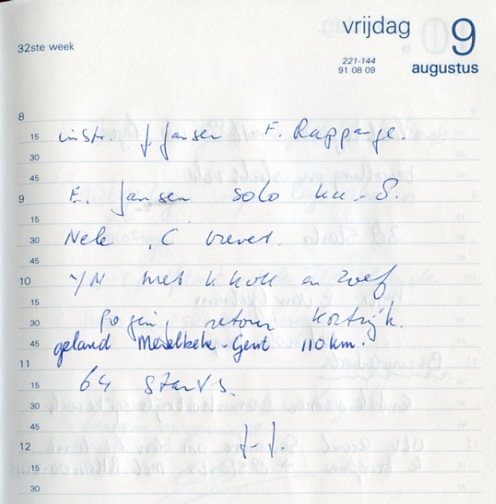 vrijdag 9
32ste week
221-144
91 08 09
augustus
8
15 instr. J Jansen F. Rappange.
30
45
9 E. Jansen solo ka-8.
15
30 Nele C brevet.
45
10 YN met k koll en Zoef
15
30 Poging retour Kortrijk.
45 geland Meselbeke-Gent 110 km.
11
15 64 starts.
30
45
12 J-J.
15
30